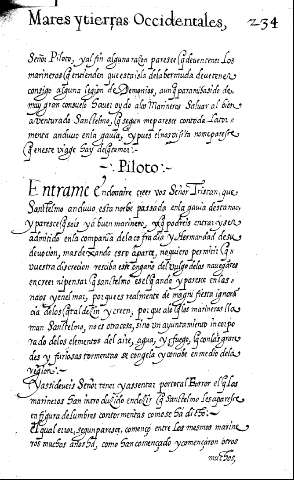 Mares y tierras Occidentales, 234
Señor Piloto, y al fin alguna razon parese q̃ deuen tener los
marineros q̃ entienden que esta isla de la bermuda deue tener
consigo alguna legion de Demonios, aunq̃ para mi ha sido de
muy gran consuelo hauer oydo a los Marineros Saluar al bien
auenturado Sanctelmo,
menta anduuo en la gauia, y pues el nos visita no me parese
q̃ en este viage hay
Piloto:
Entrame en
Señor Tristan, que
Santelmo anduuo esta noche passada en la gauia desta nao,
y parese q̃ sois ya buen marinero, y q̃ podreis entrar y ser
admitido en la compañia de la cofradia y Hermandad de su
deuocion, mas dexando esto aparte, no quiero permitir q̃ en
vuestra discrecion resciba este engaño del vulgo de los nauegantes
en creer ni pensar q̃ sanctelmo es el q̃ anda y parese en las
naos y en el mar, porque es realmente de magnifiesta ignoran
cia de los q̃ tal dezin y creen, porque a lo q̃ los marineros lla
man Sanctelmo, no es otra cosa, sino un ayuntamiento incorpo
rado de los elementos del aire, agua, y fuego, q̃ con las gran
des y furiosas tormentas se congela y en medio de la
region:
Y assi deueis Señor tener y assentar por tal Error el q̃ los
marineros han introduzido en dezir q̃ Sanctelmo se aparese
en figura de lumbres con tormentas como se ha dicho:
El qual error, segun parese, començo entre los mesmos marine
ros muchos años ha, como han començado y començaron otros
muchos,